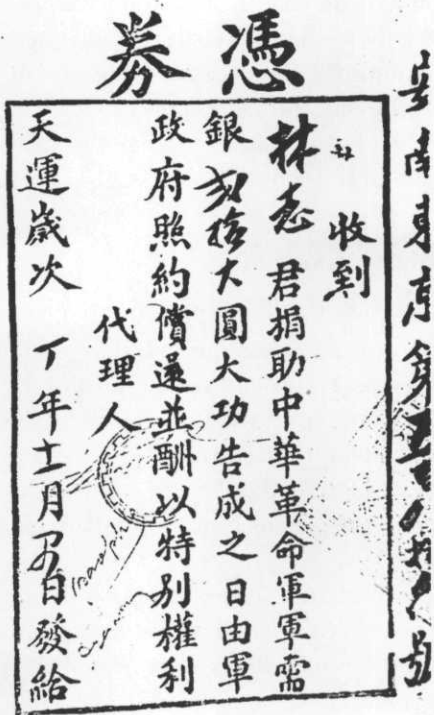 憑券
安南東京第五百八拾號
茲收到
林 君捐助中華革命軍軍需
銀貳拾大圓大功告成之日由軍
政府照約償還並酬以特別權利
代理人
天運歲次 丁年十一月日發給